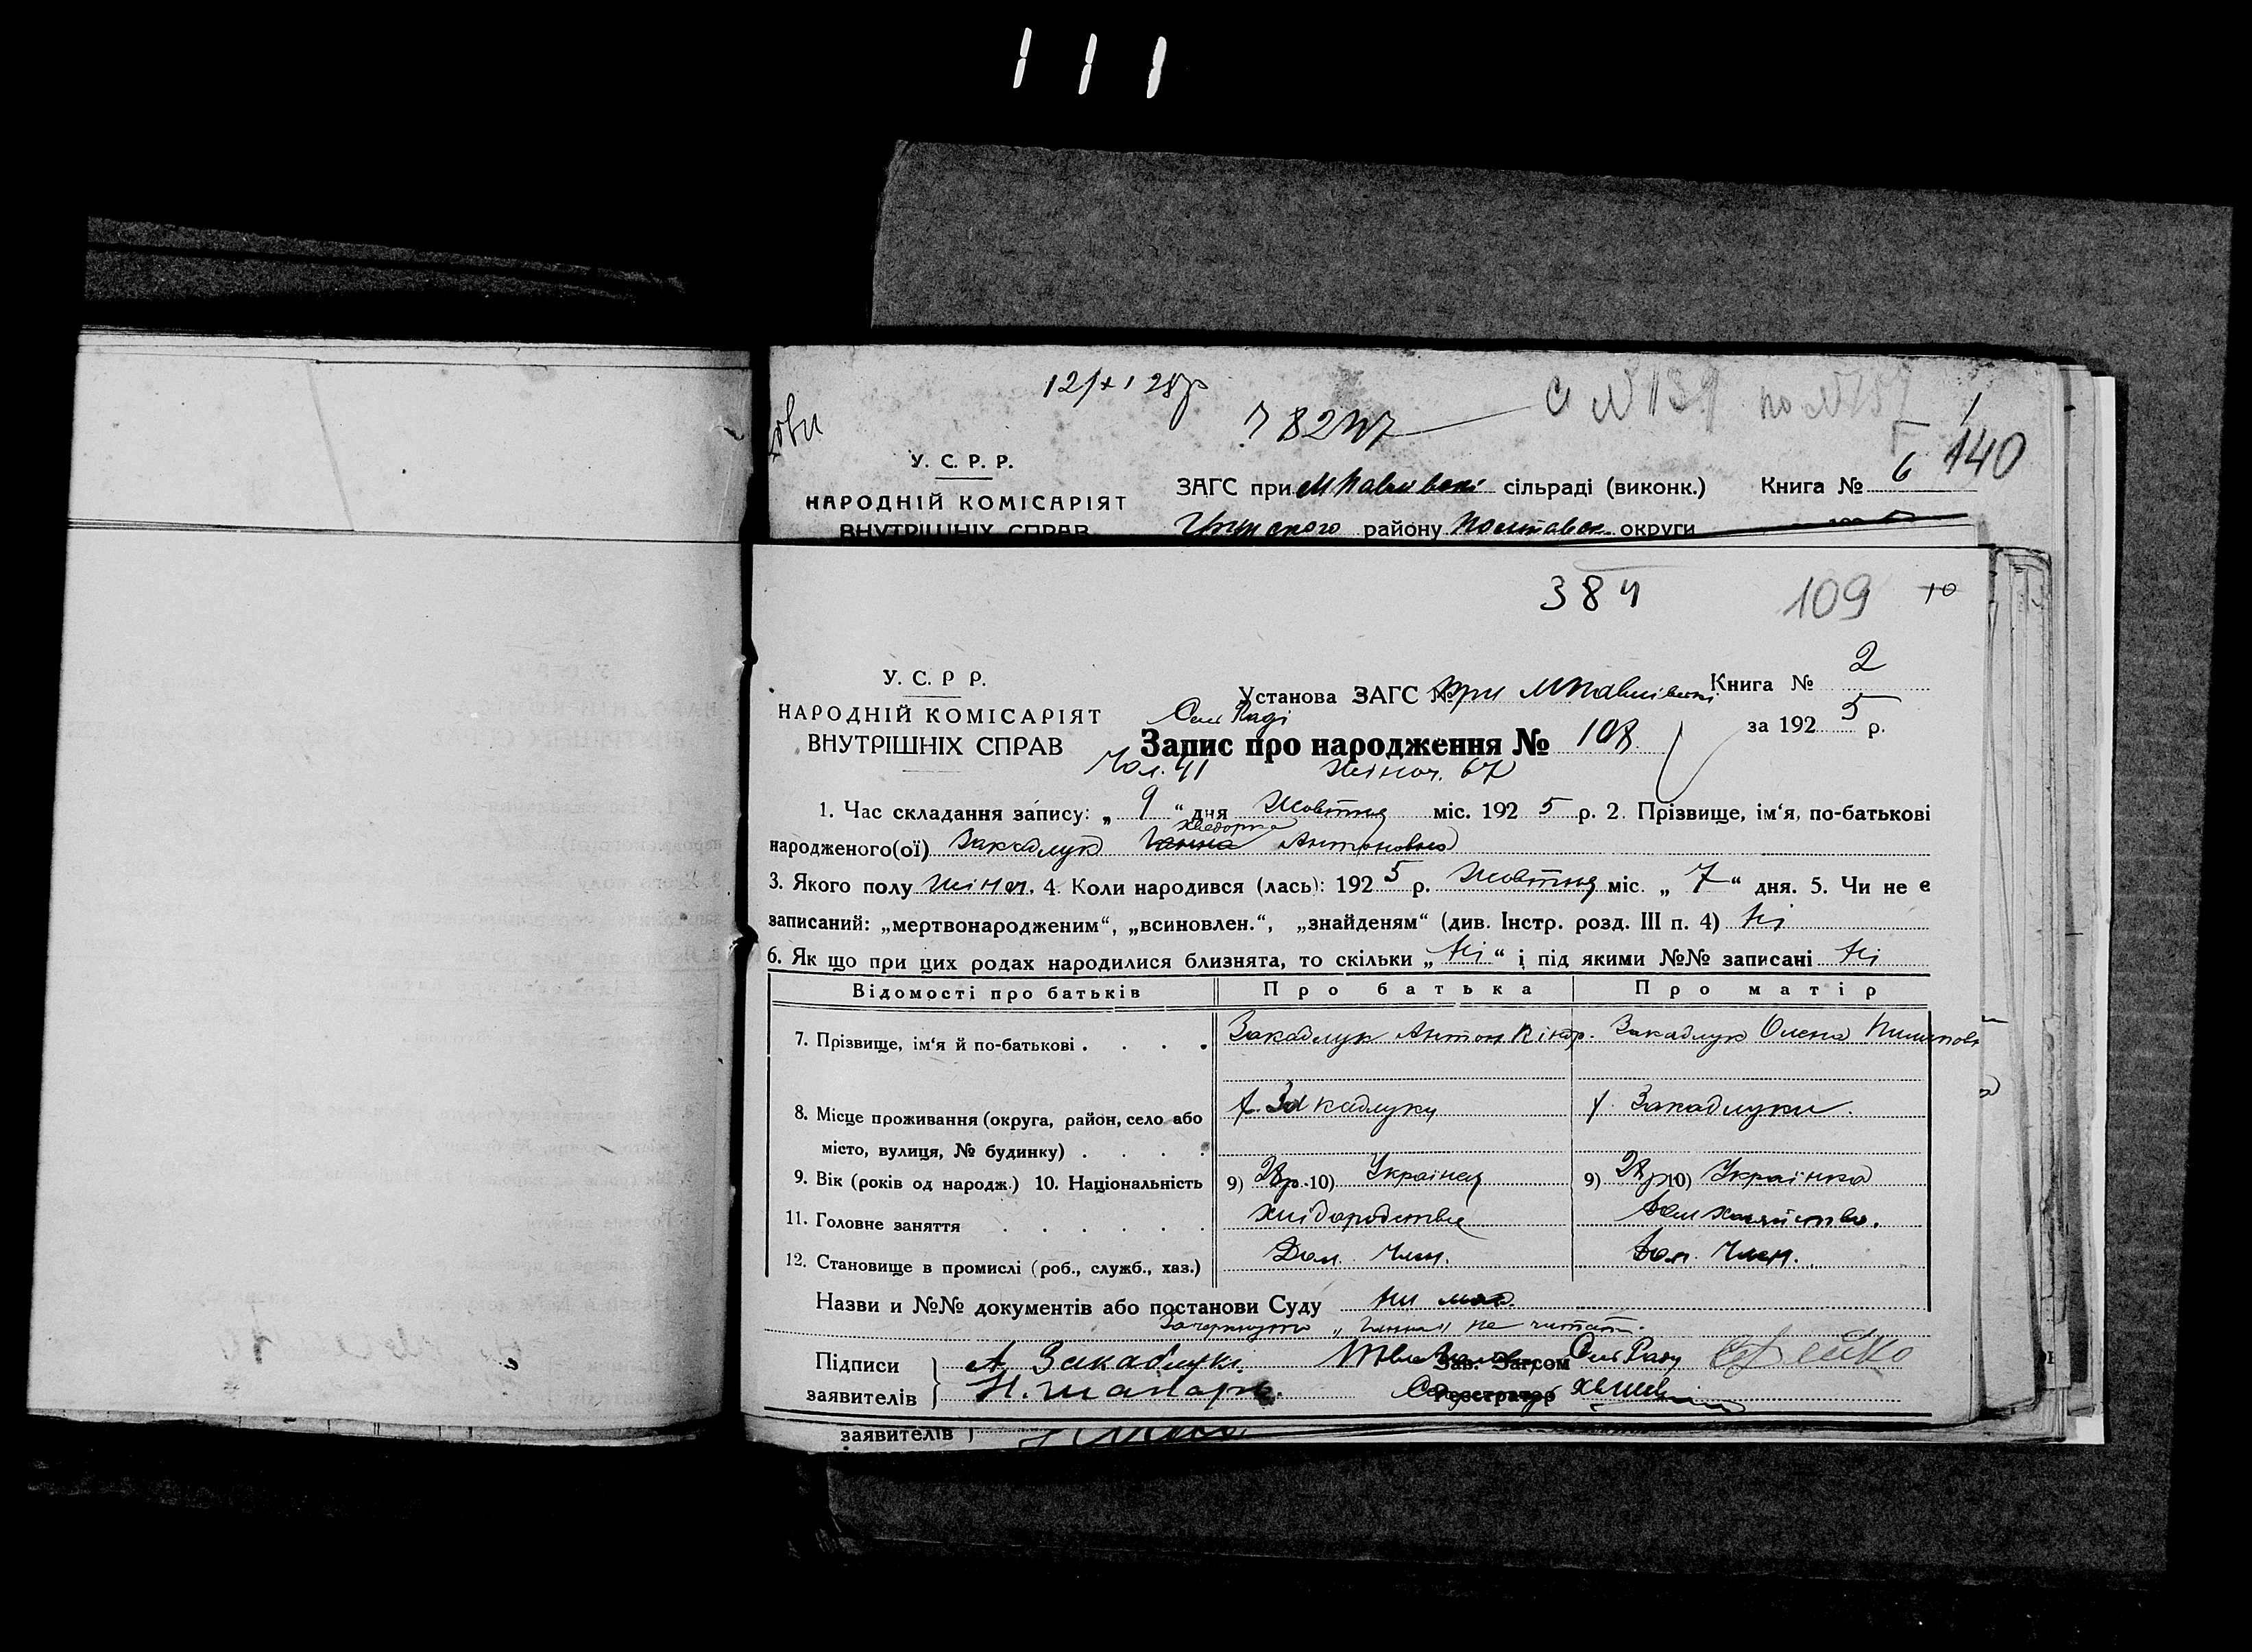 111
121 + 1 28р
78247
с №139 по №157
1
140
У. С. Р. Р.
НАРОДНІЙ КОМІСАРІЯТ
ВНУТРІШНІХ СПРАВ
ЗАГС при МПавлівскі сільраді (виконк.) Книга № 6
району Полтавск. округи
384 109 10
У. С. Р Р.
НАРОДНІЙ КОМІСАРІЯТ
ВНУТРІШНІХ СПРАВ
Установа ЗАГС № при МПавлівскі Книга № 2
Сел Раді
за 1925 р.
Запис про народження № 108
Чол. 41 Жіноч. 67
1. Час складання запису: „ 9 “ дня Жовтня міс. 1925 р. 2. Прізвище, ім‘я, по-батькові
Хведорка
народженого(ої) Закадлук Ганна Антоновна
3. Якого полу жіноч. 4. Коли народився (лась): 1925 р. Жовтня міс. „ 7 “ дня. 5. Чи не є
записаний: „мертвонародженим“, „всиновлен.“, „знайденям“ (див. Інстр. розд. III п. 4) Ні
6. Як що при цих родах народилися близнята, то скільки „ Ні “ і під якими №№ записані Ні
Відомості про батьків Про батька Про матір
7. Прізвище, ім‘я й по-батькові . . . . Закадлук Антон Кіндр. Закадлук Олена Пилипов
8. Місце проживання (округа, район, село або х. Закадлуки х. Закадлуки.
місто, вулиця, № будинку) . . . .
9. Вік (років од народж.) 10. Національність 9) 28р. 10) Українец 9) 28р 10) Українка
11. Головне заняття . . . . . . Хлідородствє Дом хазяйство.
12. Становище в промислі (роб., служб., хаз.) Доп. Член. Доп. Член.
Назви и №№ документів або постанови Суду Ни має.
Зачеркнуто „Ганна“ не читать.
Підписи А Закадлукі Зав. Загсом Сел Раду
заявителів Н. Шапарь. Реєстратор
заявителів